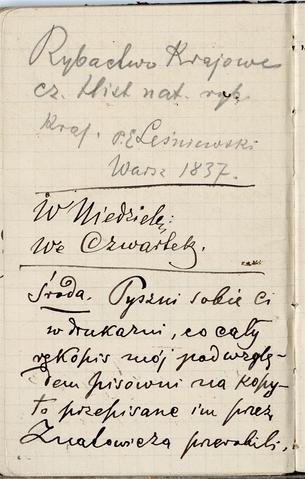 Rybactwo Krajowe
cz. Hist nat. ryb
kraj. P. E Leśniewski
Warsz 1837.
W Niedzielę:
We Czwartek.
Środa. Pyszni sobie ci
w drukarni, co cały
rękopis mój pod wzglę-
dem pisowni na kopy-
to przepisane im przez
Znatowicza przerobili,